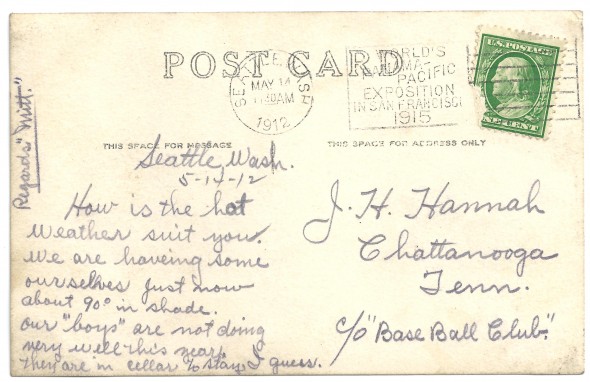 POST CARD
SEATTLE, WASH.
MAY 14
11 30 AM
1912
WORLD'S
PANAMA-
PACIFIC
EXPOSITION
IN SAN FRANCISCO
1915
U.S. POSTAGE
ONE CENT
THIS SPACE FOR MESSAGE
THIS SPACE FOR ADDRESS ONLY
Regards "Mitt."
Seattle, Wash.
5-14-12
How is the hot
weather suit you.
We are haveing some
ourselves just now
about 90° in shade.
Our "boys" are not doing
very well this year.
They are in cellar to stay I guess.
J. H. Hannah
Chattanooga
Tenn.
c/o "Base Ball Club".